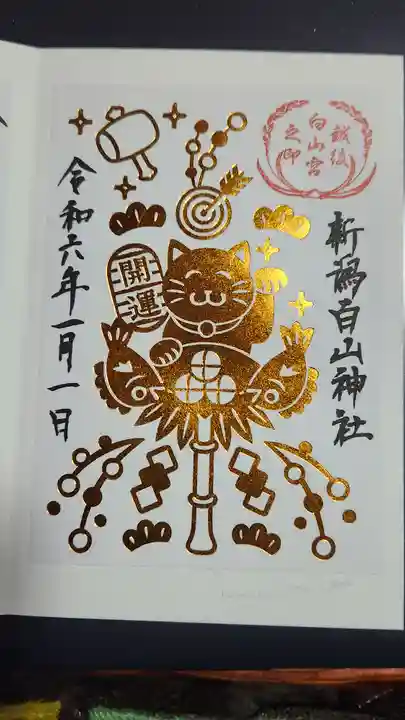 越後
白山宮
之印
新潟白山神社
開運
令和六年一月一日